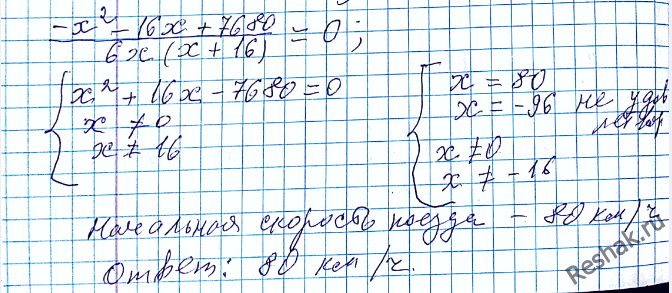 (-x² - 16x + 7680) / (6x(x + 16)) = 0;
{ x² + 16x - 7680 = 0
x ≠ 0
x ≠ 16
[ x = 80
x = -96 не удов
летвор
x ≠ 0
x ≠ -16
Начальная скорость поезда - 80 км/ч
Ответ: 80 км/ч.
Reshak.ru